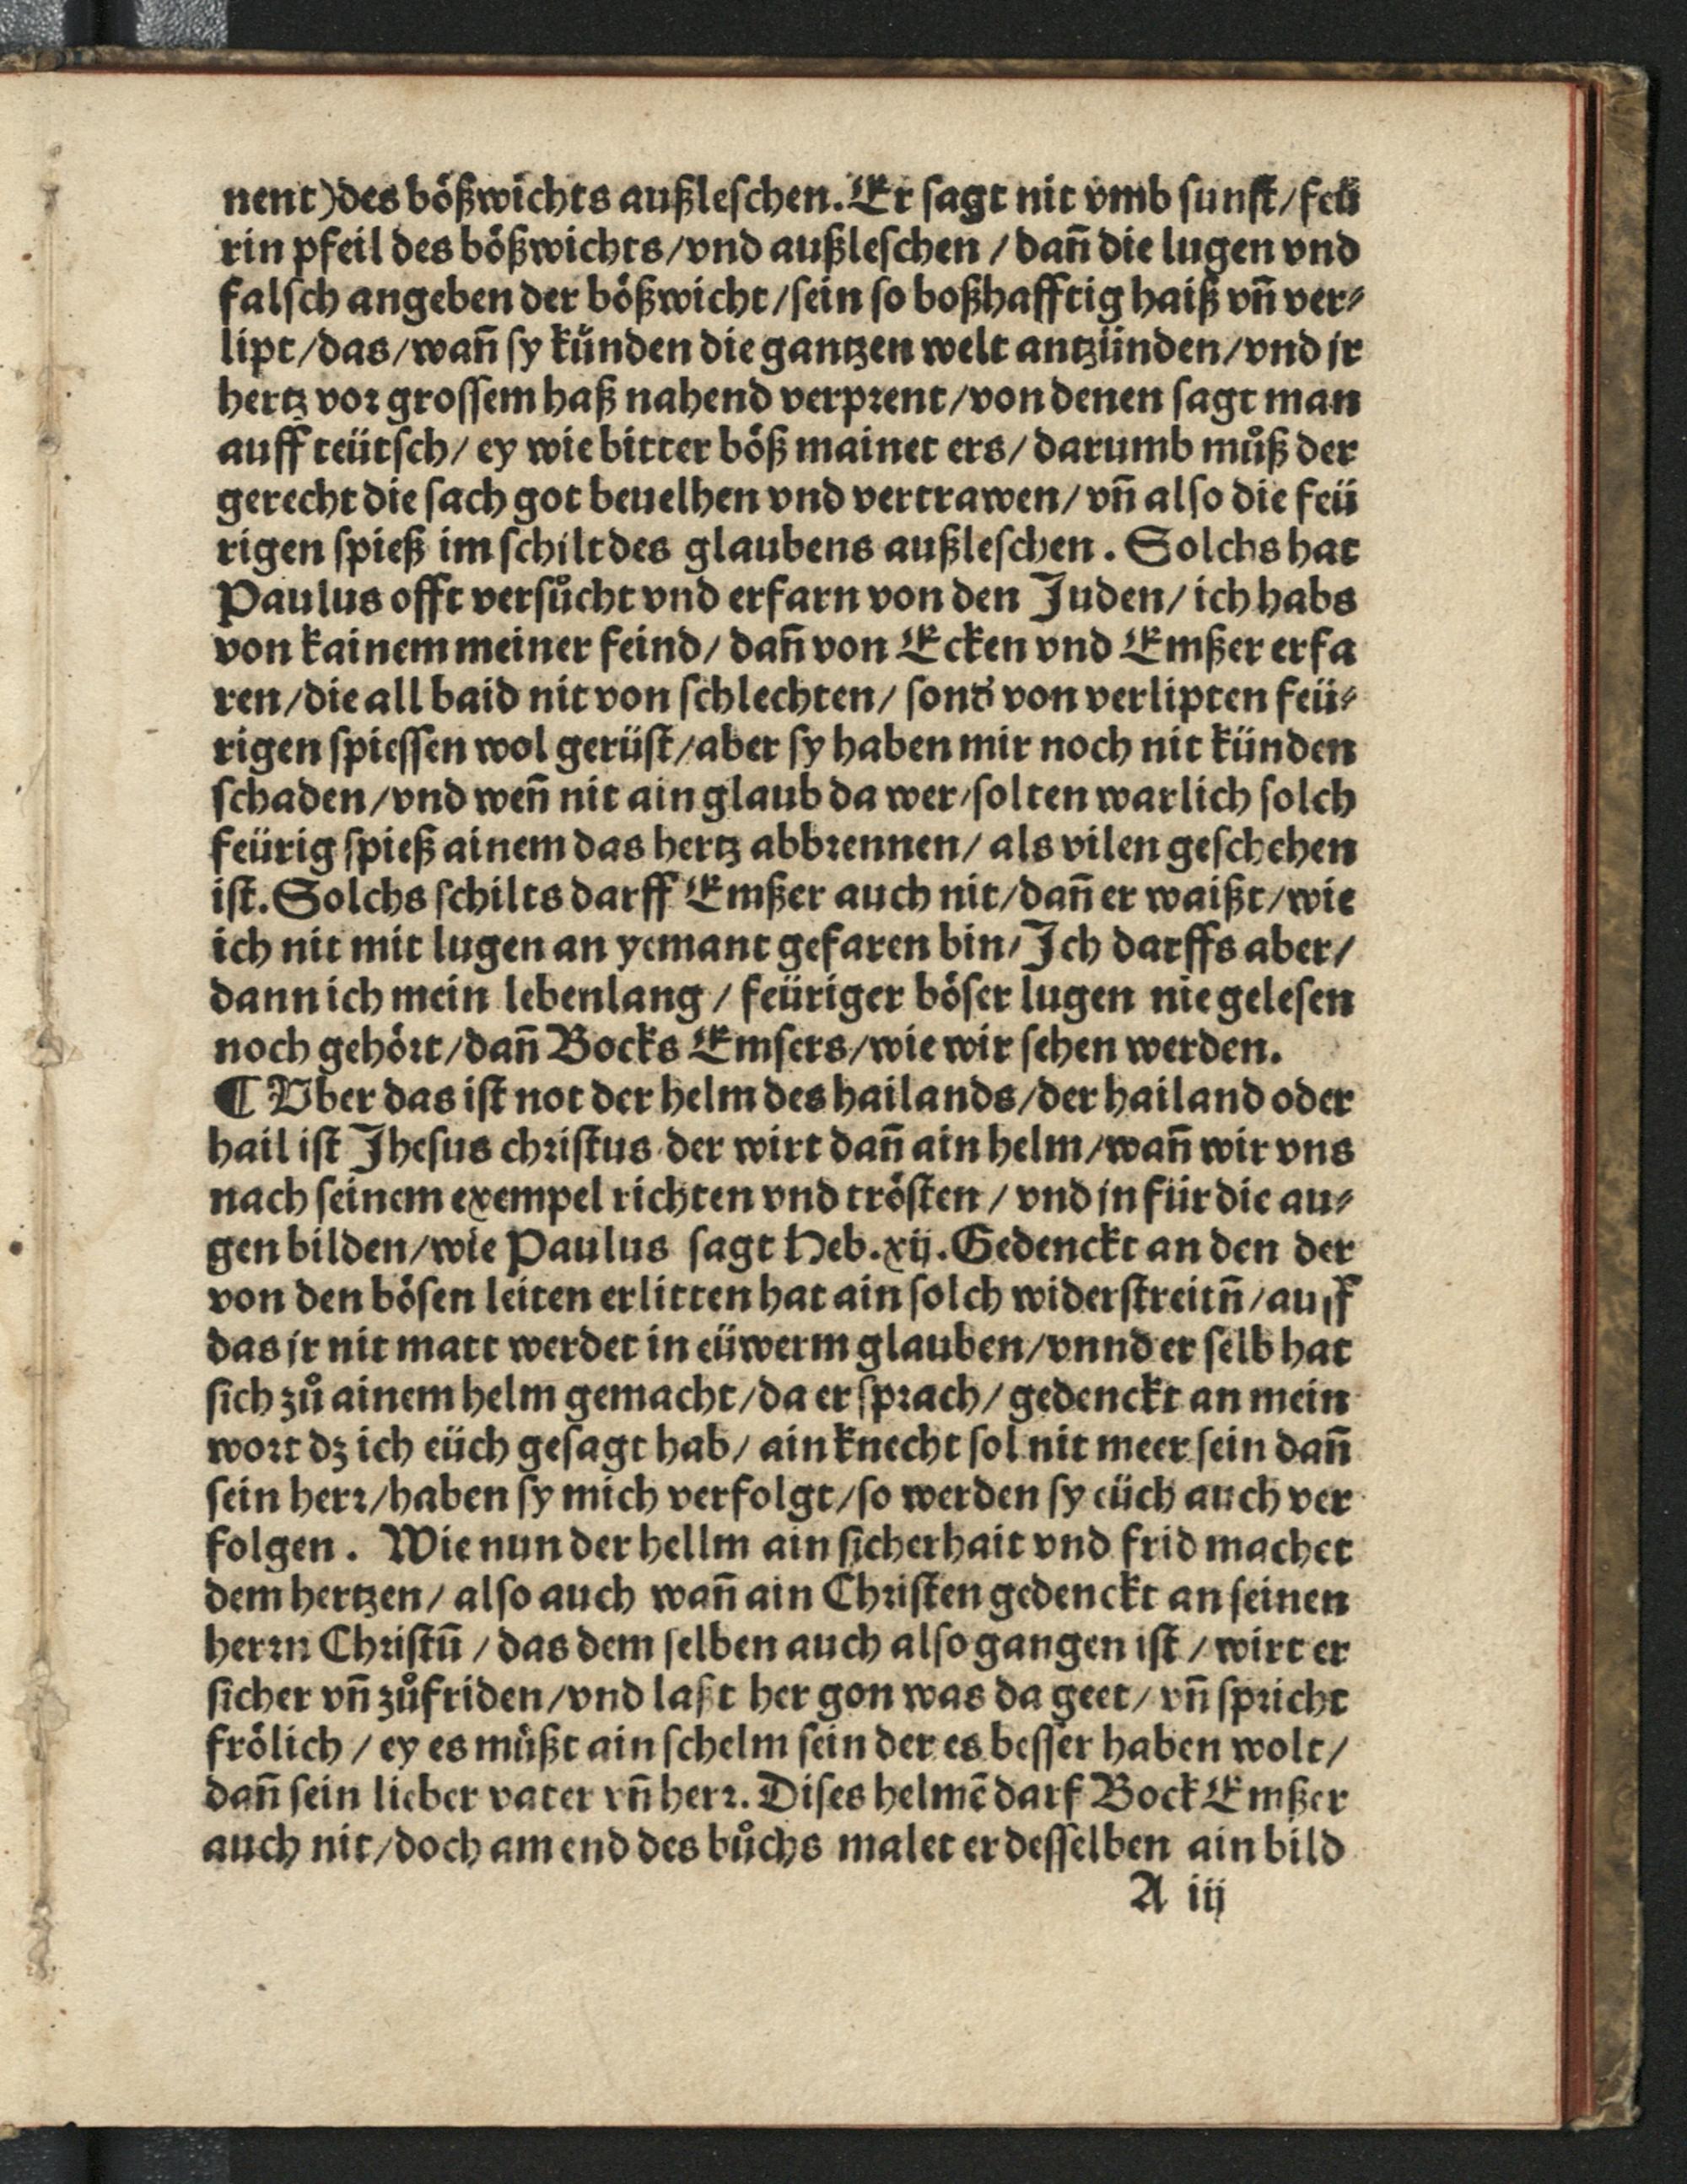 nent)des bößwichts außleſchen. Er ſagt nit vmb ſunſt/feü
rin pfeil des bößwichts/vnd außleſchen / dañ die lugen vnd
falſch angeben der bößwicht/ſein ſo boßhafftig haiß vñ ver⸗
lipt/das/wañ ſy künden die gantzen welt antzünden/vnd jr
hertz voꝛ groſſem haß nahend verpꝛent/von denen ſagt man
auff teütſch/ ey wie bitter böß mainet ers/ darumb můß der
gerecht die ſach got beuelhen vnd vertrawen/ vñ alſo die feü
rigen ſpieß im ſchilt des glaubens außleſchen. Solchs hat
Paulus offt verſůcht vnd erfarn von den Juden/ ich habs
von kainem meiner feind/ dañ von Ecken vnd Emßer erfa
ren/die all baid nit von ſchlechten/ ſond̓ von verlipten feü⸗
rigen ſpieſſen wol gerüſt/aber ſy haben mir noch nit künden
ſchaden/vnd weñ nit ain glaub da wer/ſolten warlich ſolch
feürig ſpieß ainem das hertz abbꝛennen/ als vilen geſchehen
iſt. Solchs ſchilts darff Emßer auch nit/dañ er waißt/wie
ich nit mit lugen an yemant gefaren bin/Jch darffs aber/
dann ich mein lebenlang / feüriger böſer lugen nie geleſen
noch gehöꝛt/dañ Bocks Emſers/wie wir ſehen werden.
¶ Vber das iſt not der helm des hailands/der hailand oder
hail iſt Jheſus chꝛiſtus der wirt dañ ain helm/wañ wir vns
nach ſeinem exempel richten vnd tröſten / vnd jn für die au⸗
gen bilden/wie Paulus ſagt Heb.xij. Gedenckt an den der
von den böſen leiten erlitten hat ain ſolch widerſtreitñ/auff
das jr nit matt werdet in eüwerm glauben/vnnd er ſelb hat
ſich zů ainem helm gemacht/da er ſpꝛach/ gedenckt an mein
woꝛt dz ich eüch geſagt hab/ ain knecht ſol nit meer ſein dañ
ſein herꝛ/haben ſy mich verfolgt/ſo werden ſy eüch auch ver
folgen. Wie nun der hellm ain ſicherhait vnd frid machet
dem hertzen/ alſo auch wañ ain Chꝛiſten gedenckt an ſeinen
herꝛn Chꝛiſtū / das dem ſelben auch alſo gangen iſt / wirt er
ſicher vñ zůfriden/vnd laßt her gon was da geet/ vñ ſpꝛicht
frölich / ey es müßt ain ſchelm ſein der es beſſer haben wolt/
dañ ſein lieber vater vñ herꝛ. Diſes helmē darf Bock Emßer
auch nit/doch am end des bůchs malet er deſſelben ain bild
A iij